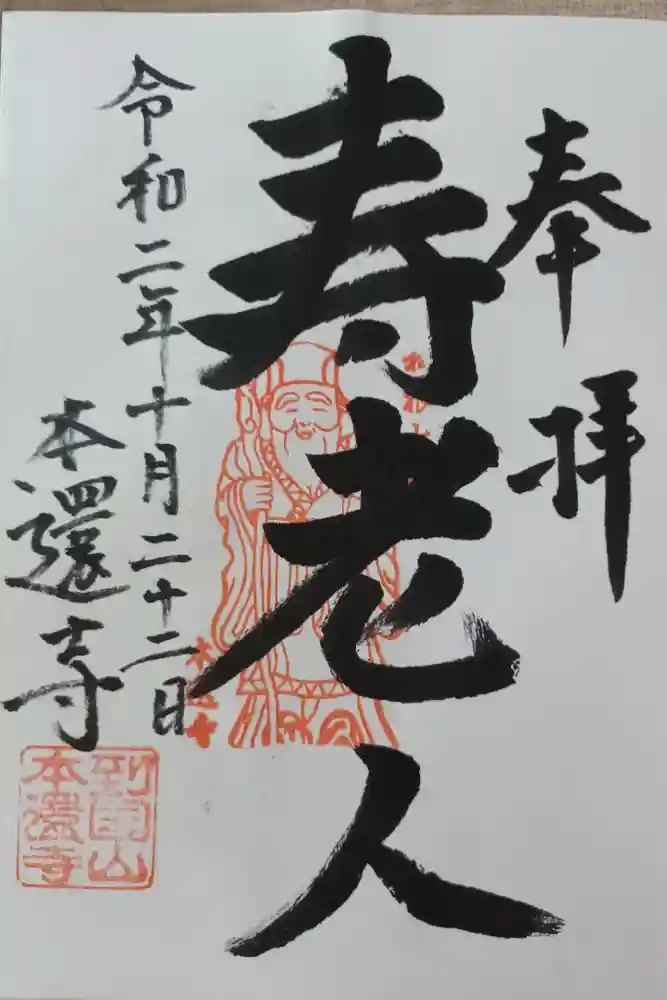 奉拝
寿老人
令和二年十月二十二日
本還寺
本還寺